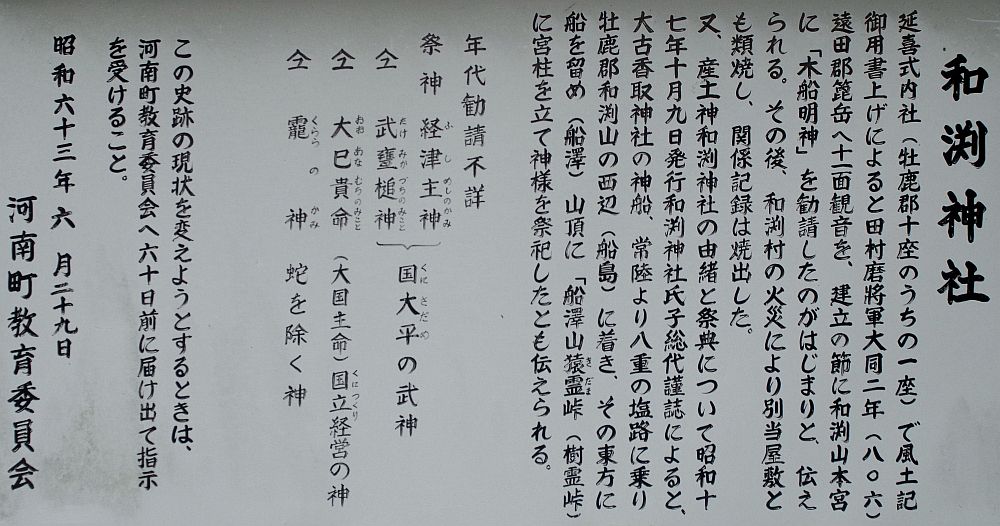 和渕神社
延喜式内社（牡鹿郡十座のうちの一座）で風土記
御用書上げによると田村麿將軍大同二年（八〇六）
遠田郡箆岳へ十一面観音を、建立の節に和渕山本宮
に「木船明神」を勧請したのがはじまりと、伝え
られる。その後、和渕村の火災により別当屋敷と
も類焼し、関係記録は焼出した。
又、産土神和渕神社の由緒と祭典について昭和十
七年十月九日発行和渕神社氏子総代謹誌によると、
大古香取神社の神船、常陸より八重の塩路に乗り
牡鹿郡和渕山の西辺（船島）に着き、その東方に
船を留め（船澤）山頂に「船澤山猿霊峠（樹霊峠）
に宮柱を立て神様を祭祀したとも伝えられる。
年代勧請不詳
祭神 経津主神
仝 武甕槌神 国大平の武神
仝 大巳貴命（大国主命）国立経営の神
仝 龗の神 蛇を除く神
この史跡の現状を変えようとするときは、
河南町教育委員会へ六十日前に届け出て指示
を受けること。
昭和六十三年六月二十九日
河南町教育委員会